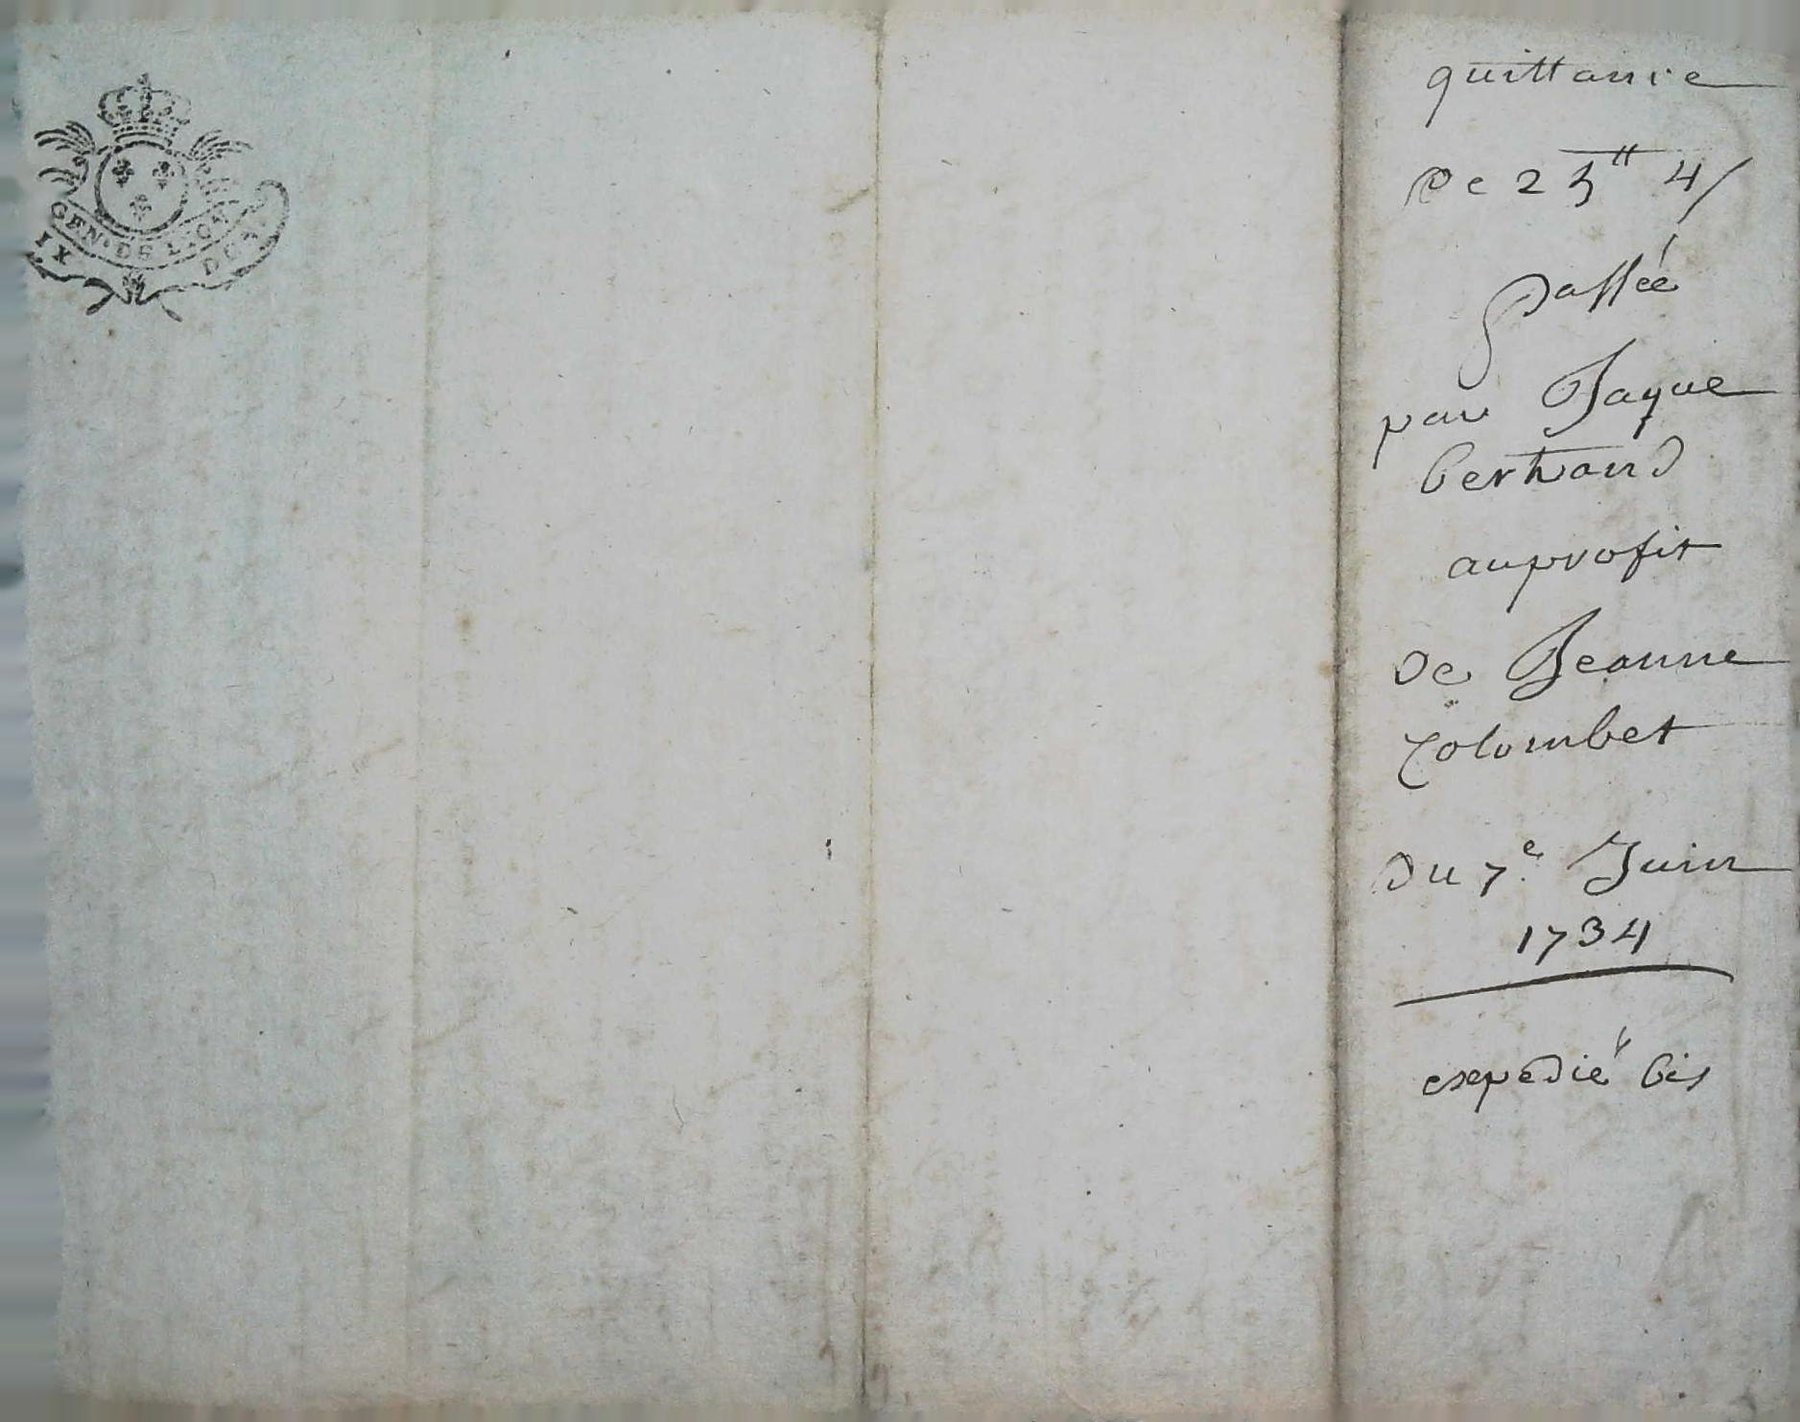 GEN. DE LION
IX DEN.
quittance
De 25ʰ 4s
passée
par Jaque
bertrand
au profit
De Jeanne
Colombet
Du 7e Juin
1734
expedié bis